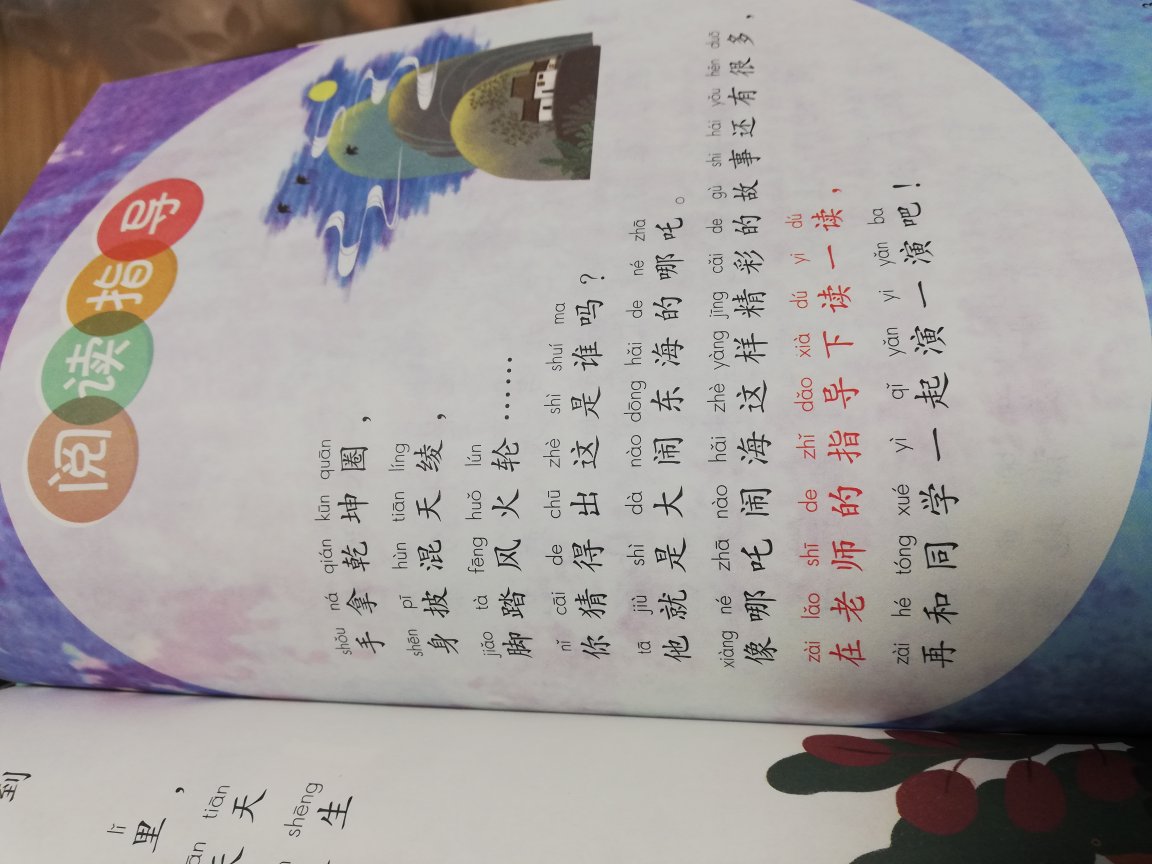 阅读指导
shǒu ná qián kūn quān
手拿乾坤圈，
shēn pī hùn tiān líng
身披混天绫，
jiǎo tà fēng huǒ lún
脚踏风火轮……
nǐ cāi de chū zhè shì shuí ma
你猜得出这是谁吗？
tā jiù shì dà nào dōng hǎi de né zhā
他就是大闹东海的哪吒。
xiàng né zhā nào hǎi zhè yàng jīng cǎi de gù shi hái yǒu hěn duō
像哪吒闹海这样精彩的故事还有很多，
zài lǎo shī de zhǐ dǎo xià dú yi dú
在老师的指导下读一读，
zài hé tóng xué yì qǐ yǎn yi yǎn ba
再和同学一起演一演吧！
到
lǐ
里，
tiān
天
shēng
生